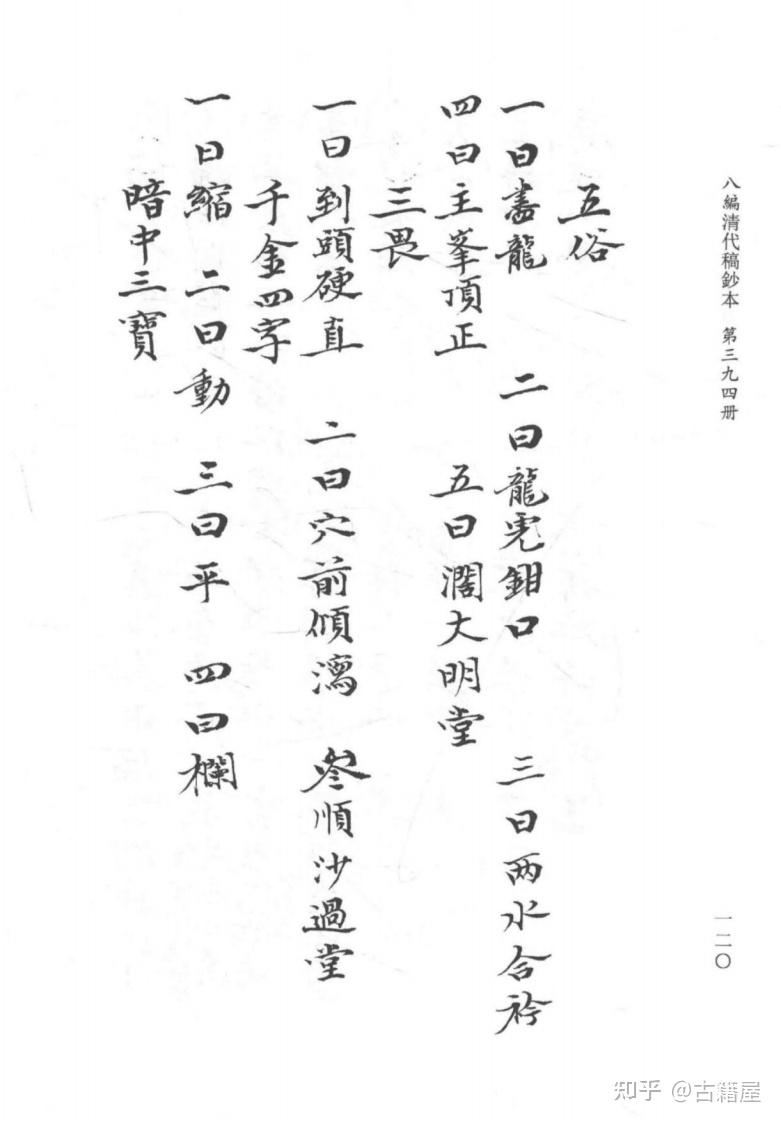 八編清代稿鈔本 第三九四册
一二〇
五俗
一曰龍 二曰龍虎鉗口 三曰两水合衿
四曰主峯頂正 五曰濶大明堂
三畏
一曰到頭硬直 二曰穴前傾瀉 叄順沙過堂
千金四字
一曰縮 二曰動 三曰平 四曰欄
暗中三寶
知乎 @古籍屋